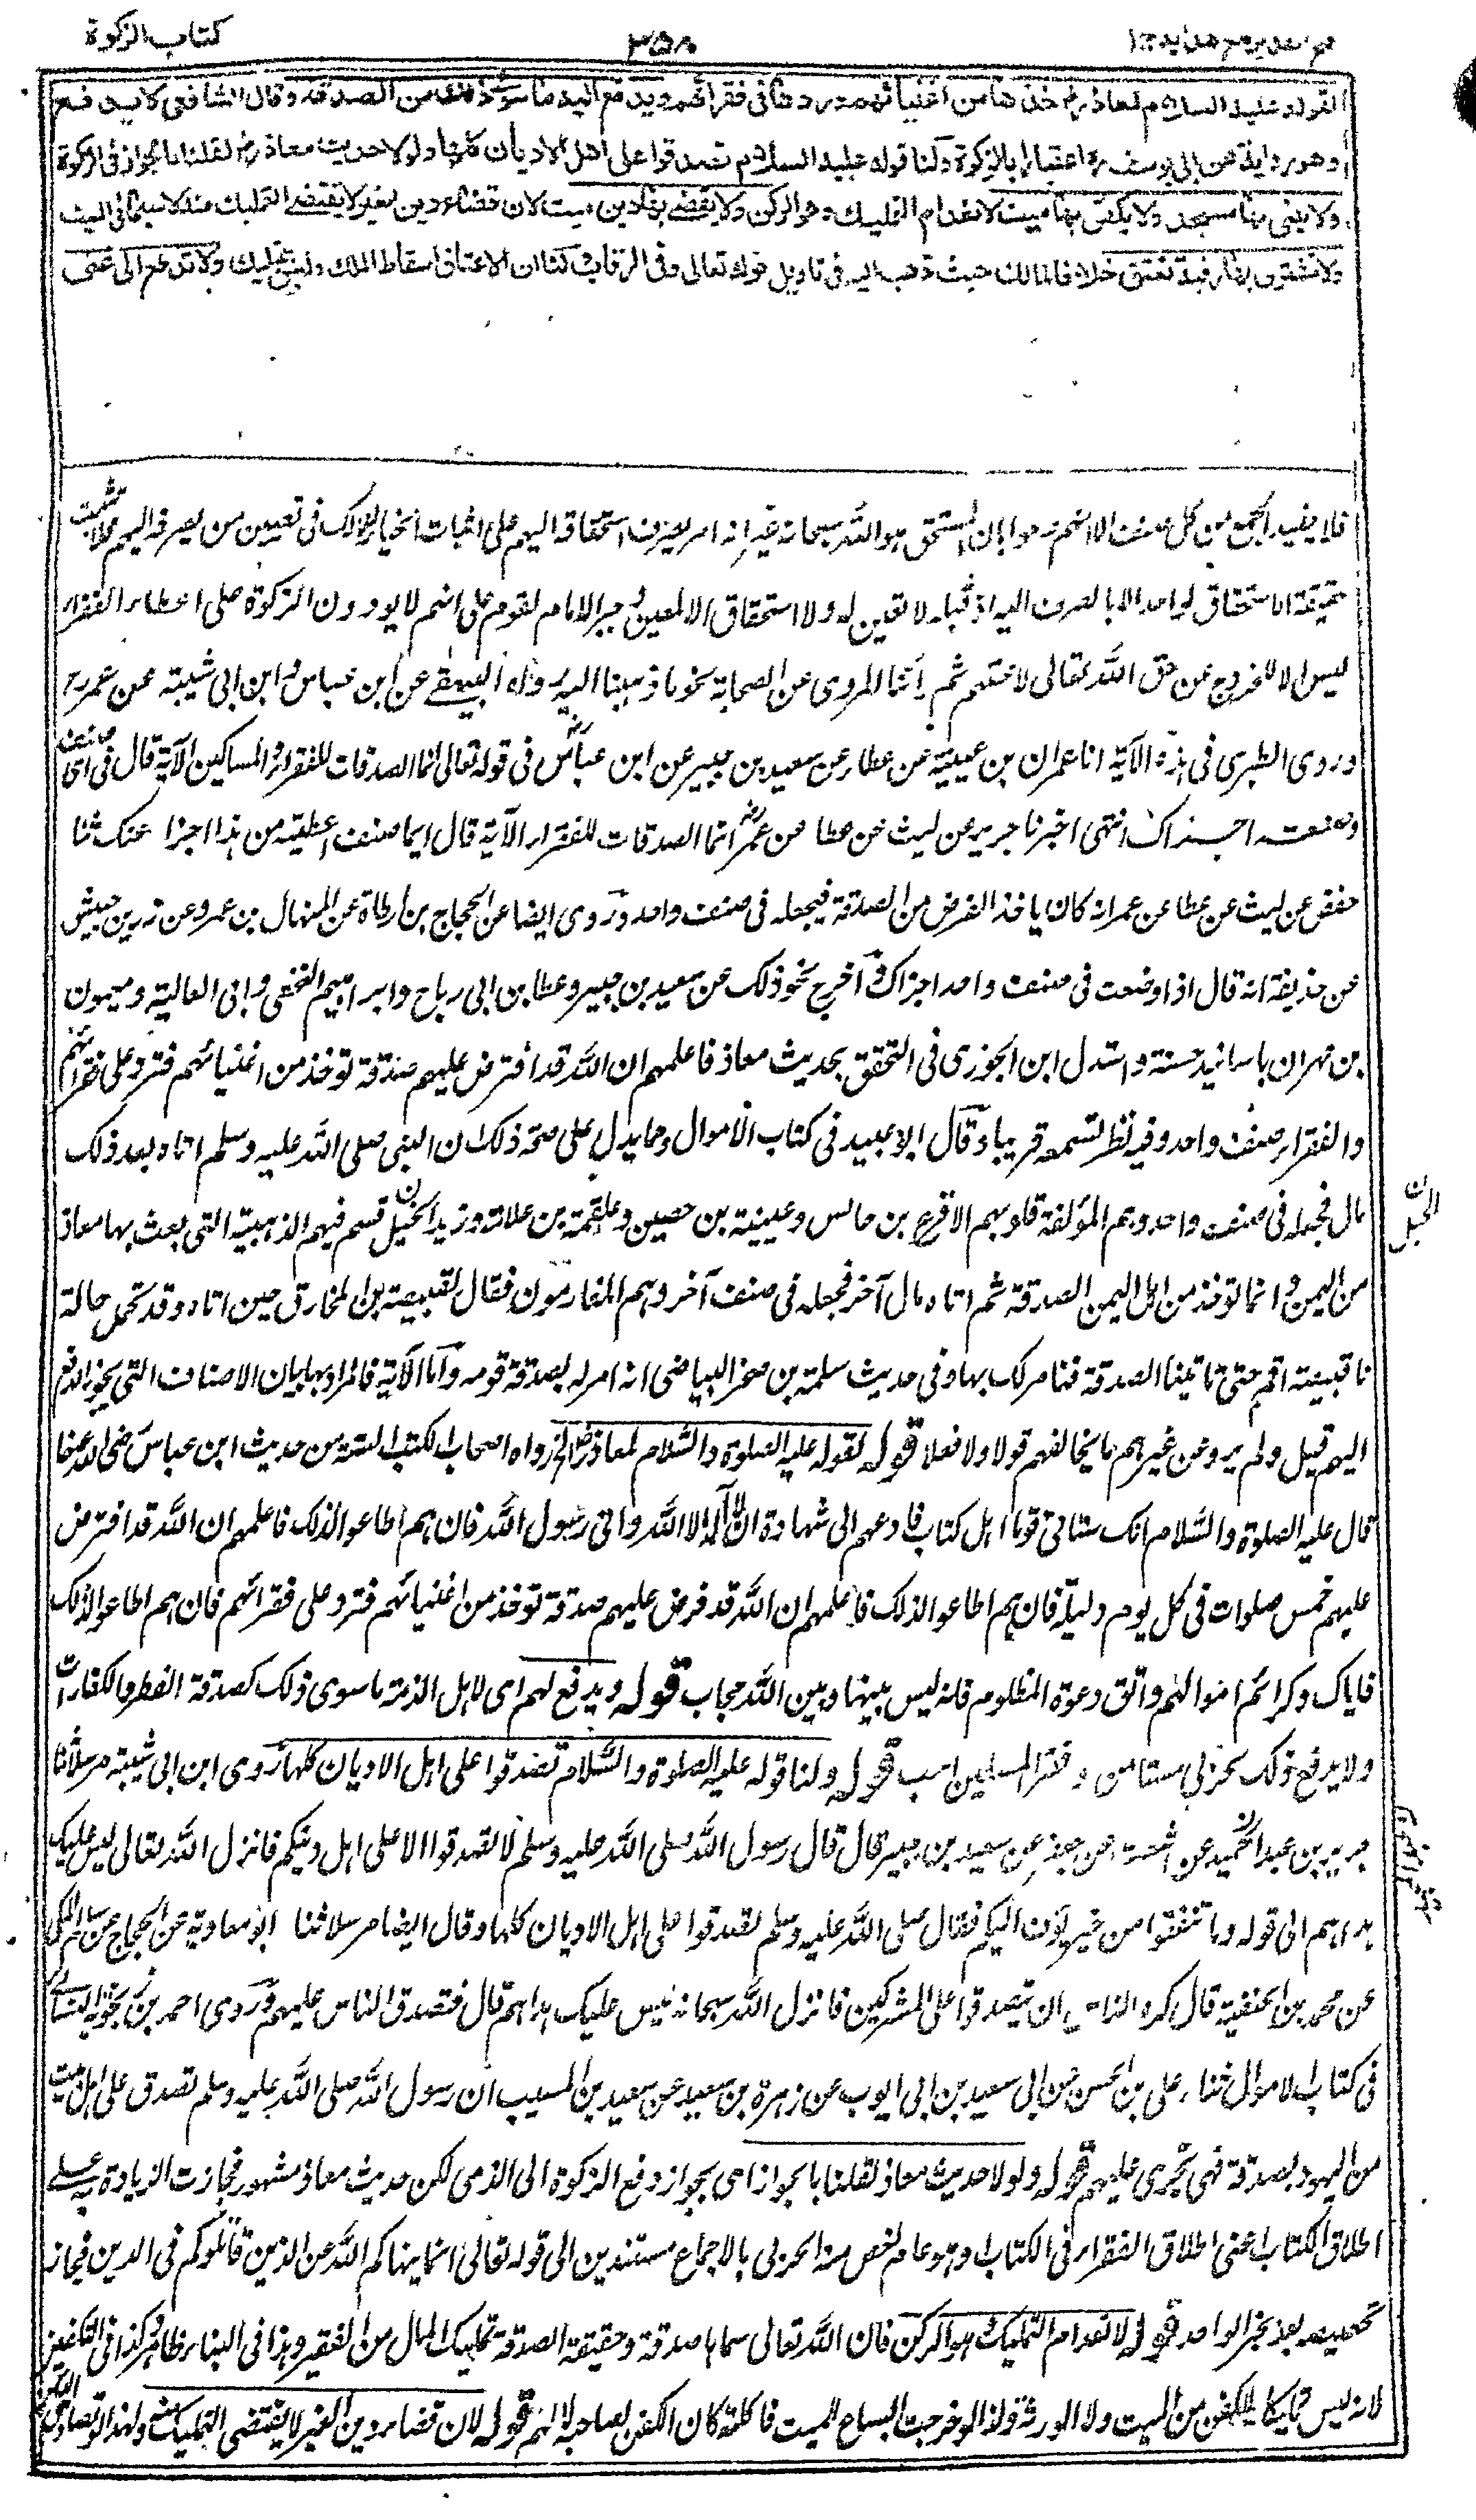 كتاب الزكوة
٣٥٨
لقوله عليه السلام لمعاذ رض خذها من اغنيائهم وردها فى فقرائهم ويدفع اليه ما سوى ذلك من الصدقة وقال الشافعى لا يدفع
وهو رواية عن ابى يوسف رح اعتبارا بالزكوة ولنا قوله عليه السلام تصدقوا على اهل الاديان كلها ولولا حديث معاذ رض لقلنا بالجواز فى الزكوة
ولا يبنى بها مسجد ولا يكفن بها ميت لانعدام التمليك وهو الركن ولا يقضى بها دين ميت لان قضاء دين الغير لا يقتضى التمليك منه لا سيما فى الميت
ولا تشترى بها رقبة تعتق خلافا لمالك حيث ذهب اليه فى تاويل قوله تعالى وفى الرقاب ولنا ان الاعتاق اسقاط الملك وليس بتمليك ولا تدفع الى غنى
فلا يفيد الجمع من كل صنف الا انهم صرحوا بان المستحق هو الله سبحانه غير انه امر بصرف استحقاقه اليهم على اثبات الخيار للمالك فى تعيين من يصرفه اليهم فلا تثبت
حقيقة الاستحقاق لواحد الا بالصرف اليه اذ قبله لا تعين له ولا استحقاق الا لمعين وجبر الامام لقوم على انهم لا يودون الزكوة على اعطاء الفقراء
ليس الا للخروج عن حق الله تعالى لا حقهم ثم رأينا المروى عن الصحابة نحو ما ذهبنا اليه رواه البيهقى عن ابن عباس وابن ابى شيبة عن عمر رض
وروى الطبرى فى هذه الآية انا عمران بن عيينة عن عطاء عن سعيد بن جبير عن ابن عباس رض فى قوله تعالى انما الصدقات للفقراء والمساكين الآية قال فى اى صنف
وضعته اجزاك انتهى اخبرنا جرير عن ليث عن عطا عن عمر رض انما الصدقات للفقراء الآية قال ايما صنف اعطيته من هذا اجزا عنك ثنا
حفص عن ليث عن عطا عن عمر انه كان ياخذ الفرض من الصدقة فيجعله فى صنف واحد وروى ايضا عن الحجاج بن ارطاة عن المنهال بن عمرو عن زر بن حبيش
عن حذيفة انه قال اذا وضعت فى صنف واحد اجزاك واخرج نحو ذلك عن سعيد بن جبير وعطا بن ابى رباح وابراهيم النخعى وابى العالية وميمون
بن مهران باسانيد حسنة واستدل ابن الجوزى فى التحقق بحديث معاذ فاعلمهم ان الله قد افترض عليهم صدقة توخذ من اغنيائهم فترد على فقرائهم
والفقراء صنف واحد وفيه نظر تسمعه قريبا وقال ابو عبيد فى كتاب الاموال ومما يدل على صحة ذلك ان النبى صلى الله عليه وسلم اتاه بعد ذلك
مال فجعله فى صنف واحد وهم المؤلفة قلوبهم الاقرع بن حابس وعيينة بن حصين وعلقمة بن علاثة وزيد الخيل قسم فيهم الذهبية التى بعث بها معاذ
من اليمن وانما توخذ من اهل اليمن الصدقة ثم اتاه مال آخر فجعله فى صنف آخر وهم الغارمون فقال لقبيصة بن المخارق حين اتاه وقد تحمل حمالة
يا قبيصة اقم حتى تاتينا الصدقة فنامر لك بها وفى حديث سلمة بن صخر البياضى انه امر له بصدقة قومه واما الآية فالمراد بها بيان الاصناف التى يجوز الدفع
اليهم قيل ولم يرو عن غيرهم ما يخالفهم قولا ولا فعلا قوله لقوله عليه الصلوة والسلام لمعاذ رض الخ رواه اصحاب الكتب الستة من حديث ابن عباس رضى الله عنهما
قال عليه الصلوة والسلام انك ستاتى قوما اهل كتاب فادعهم الى شهادة ان لا اله الا الله وانى رسول الله فان هم اطاعوا لذلك فاعلمهم ان الله قد افترض
عليهم خمس صلوات فى كل يوم وليلة فان هم اطاعوا لذلك فاعلمهم ان الله قد فرض عليهم صدقة توخذ من اغنيائهم فترد على فقرائهم فان هم اطاعوا لذلك
فاياك وكرائم اموالهم واتق دعوة المظلوم فانه ليس بينها وبين الله حجاب قوله ويدفع لهم اى لاهل الذمة ما سوى ذلك كصدقة الفطر والكفارات
ولا يدفع ذلك لحربى مستامن وفقراء المسلمين احب قوله ولنا قوله عليه الصلوة والسلام تصدقوا على اهل الاديان كلها روى ابن ابى شيبة مرسلا ثنا
جرير بن عبد الحميد عن اشعث عن جعفر عن سعيد بن جبير قال قال رسول الله صلى الله عليه وسلم لا تصدقوا الا على اهل دينكم فانزل الله تعالى ليس عليك
هداهم الى قوله وما تنفقوا من خير يوف اليكم فقال صلى الله عليه وسلم تصدقوا على اهل الاديان كلها وقال ايضا مرسلا ثنا ابو معاوية عن الحجاج عن سالم المكى
عن محمد بن الحنفية قال كره الناس ان يتصدقوا على المشركين فانزل الله سبحانه ليس عليك هداهم قال فتصدق الناس عليهم وروى احمد بن زنجويه النسائى
فى كتاب الاموال ثنا على بن الحسن عن ابى سعيد بن ابى ايوب عن زهرة بن سعيد عن سعيد بن المسيب ان رسول الله صلى الله عليه وسلم تصدق على اهل بيت
من اليهود بصدقة فهى تجرى عليهم قوله ولولا حديث معاذ لقلنا بالجواز اى بجواز دفع الزكوة الى الذمى لكن حديث معاذ مشهور فجازت الزيادة به على
اطلاق الكتاب اعنى اطلاق الفقراء فى الكتاب او هو عام خص منه الحربى بالاجماع مستندين الى قوله تعالى انما ينهاكم الله عن الذين قاتلوكم فى الدين فجاز
تخصيصه بعد بخبر الواحد قوله لانعدام التمليك وهو الركن فان الله تعالى سماها صدقة وحقيقة الصدقة تمليك المال من الفقير وهذا فى البناء ظاهر وكذا فى التكفين
لانه ليس تمليكا للكفن من الميت ولا الورثة ولذا لو اخرجت السباع الميت فاكلته كان الكفن لصاحبه لا لهم قوله لان قضاء دين الغير لا يقتضى التمليك منه ولهذا لو تصادق